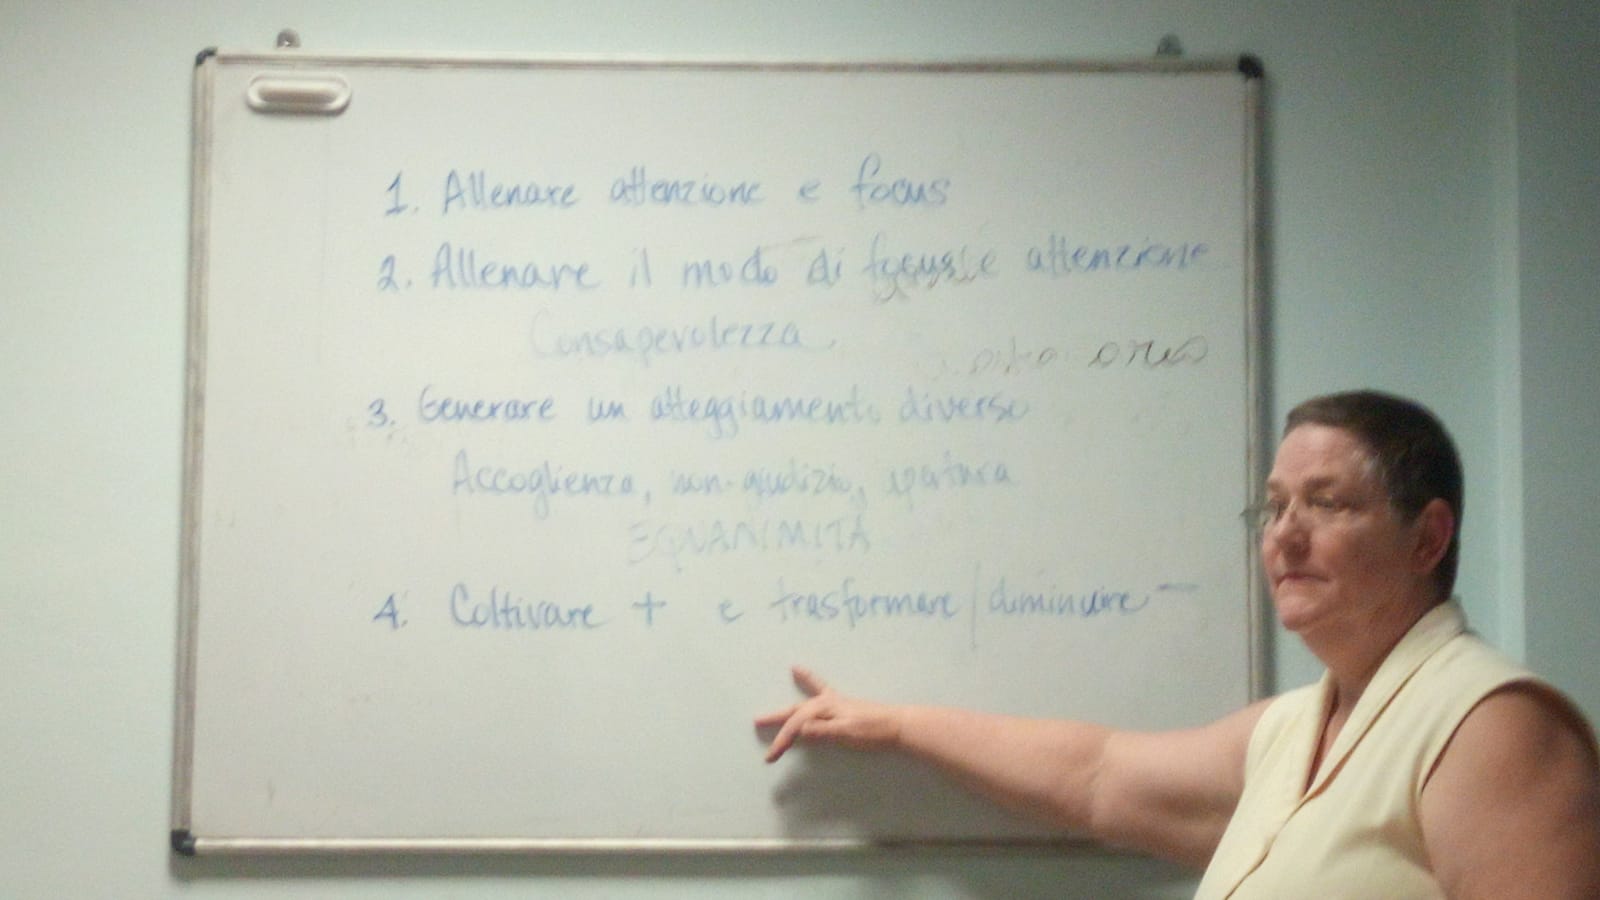 1. Allenare attenzione e focus
2. Allenare il modo di focus e attenzione
Consapevolezza
3. Generare un atteggiamento diverso
Accoglienza, non-giudizio, apertura
EQUANIMITÀ
4. Coltivare + e trasformare / diminuire -